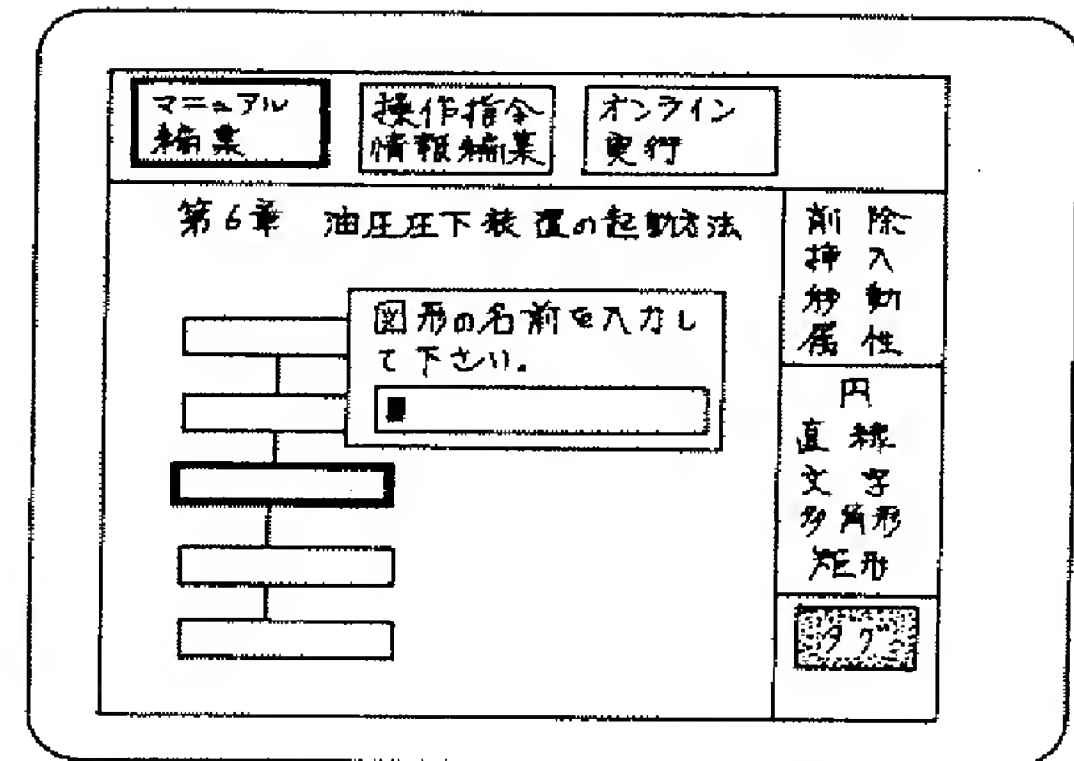 マニュアル
編集
操作指令
情報編集
オンライン
実行
第6章 油圧圧下装置の起動方法
図形の名前を入力し
て下さい.
削除
挿入
移動
属性
円
直線
文字
多角形
矩形
タグ